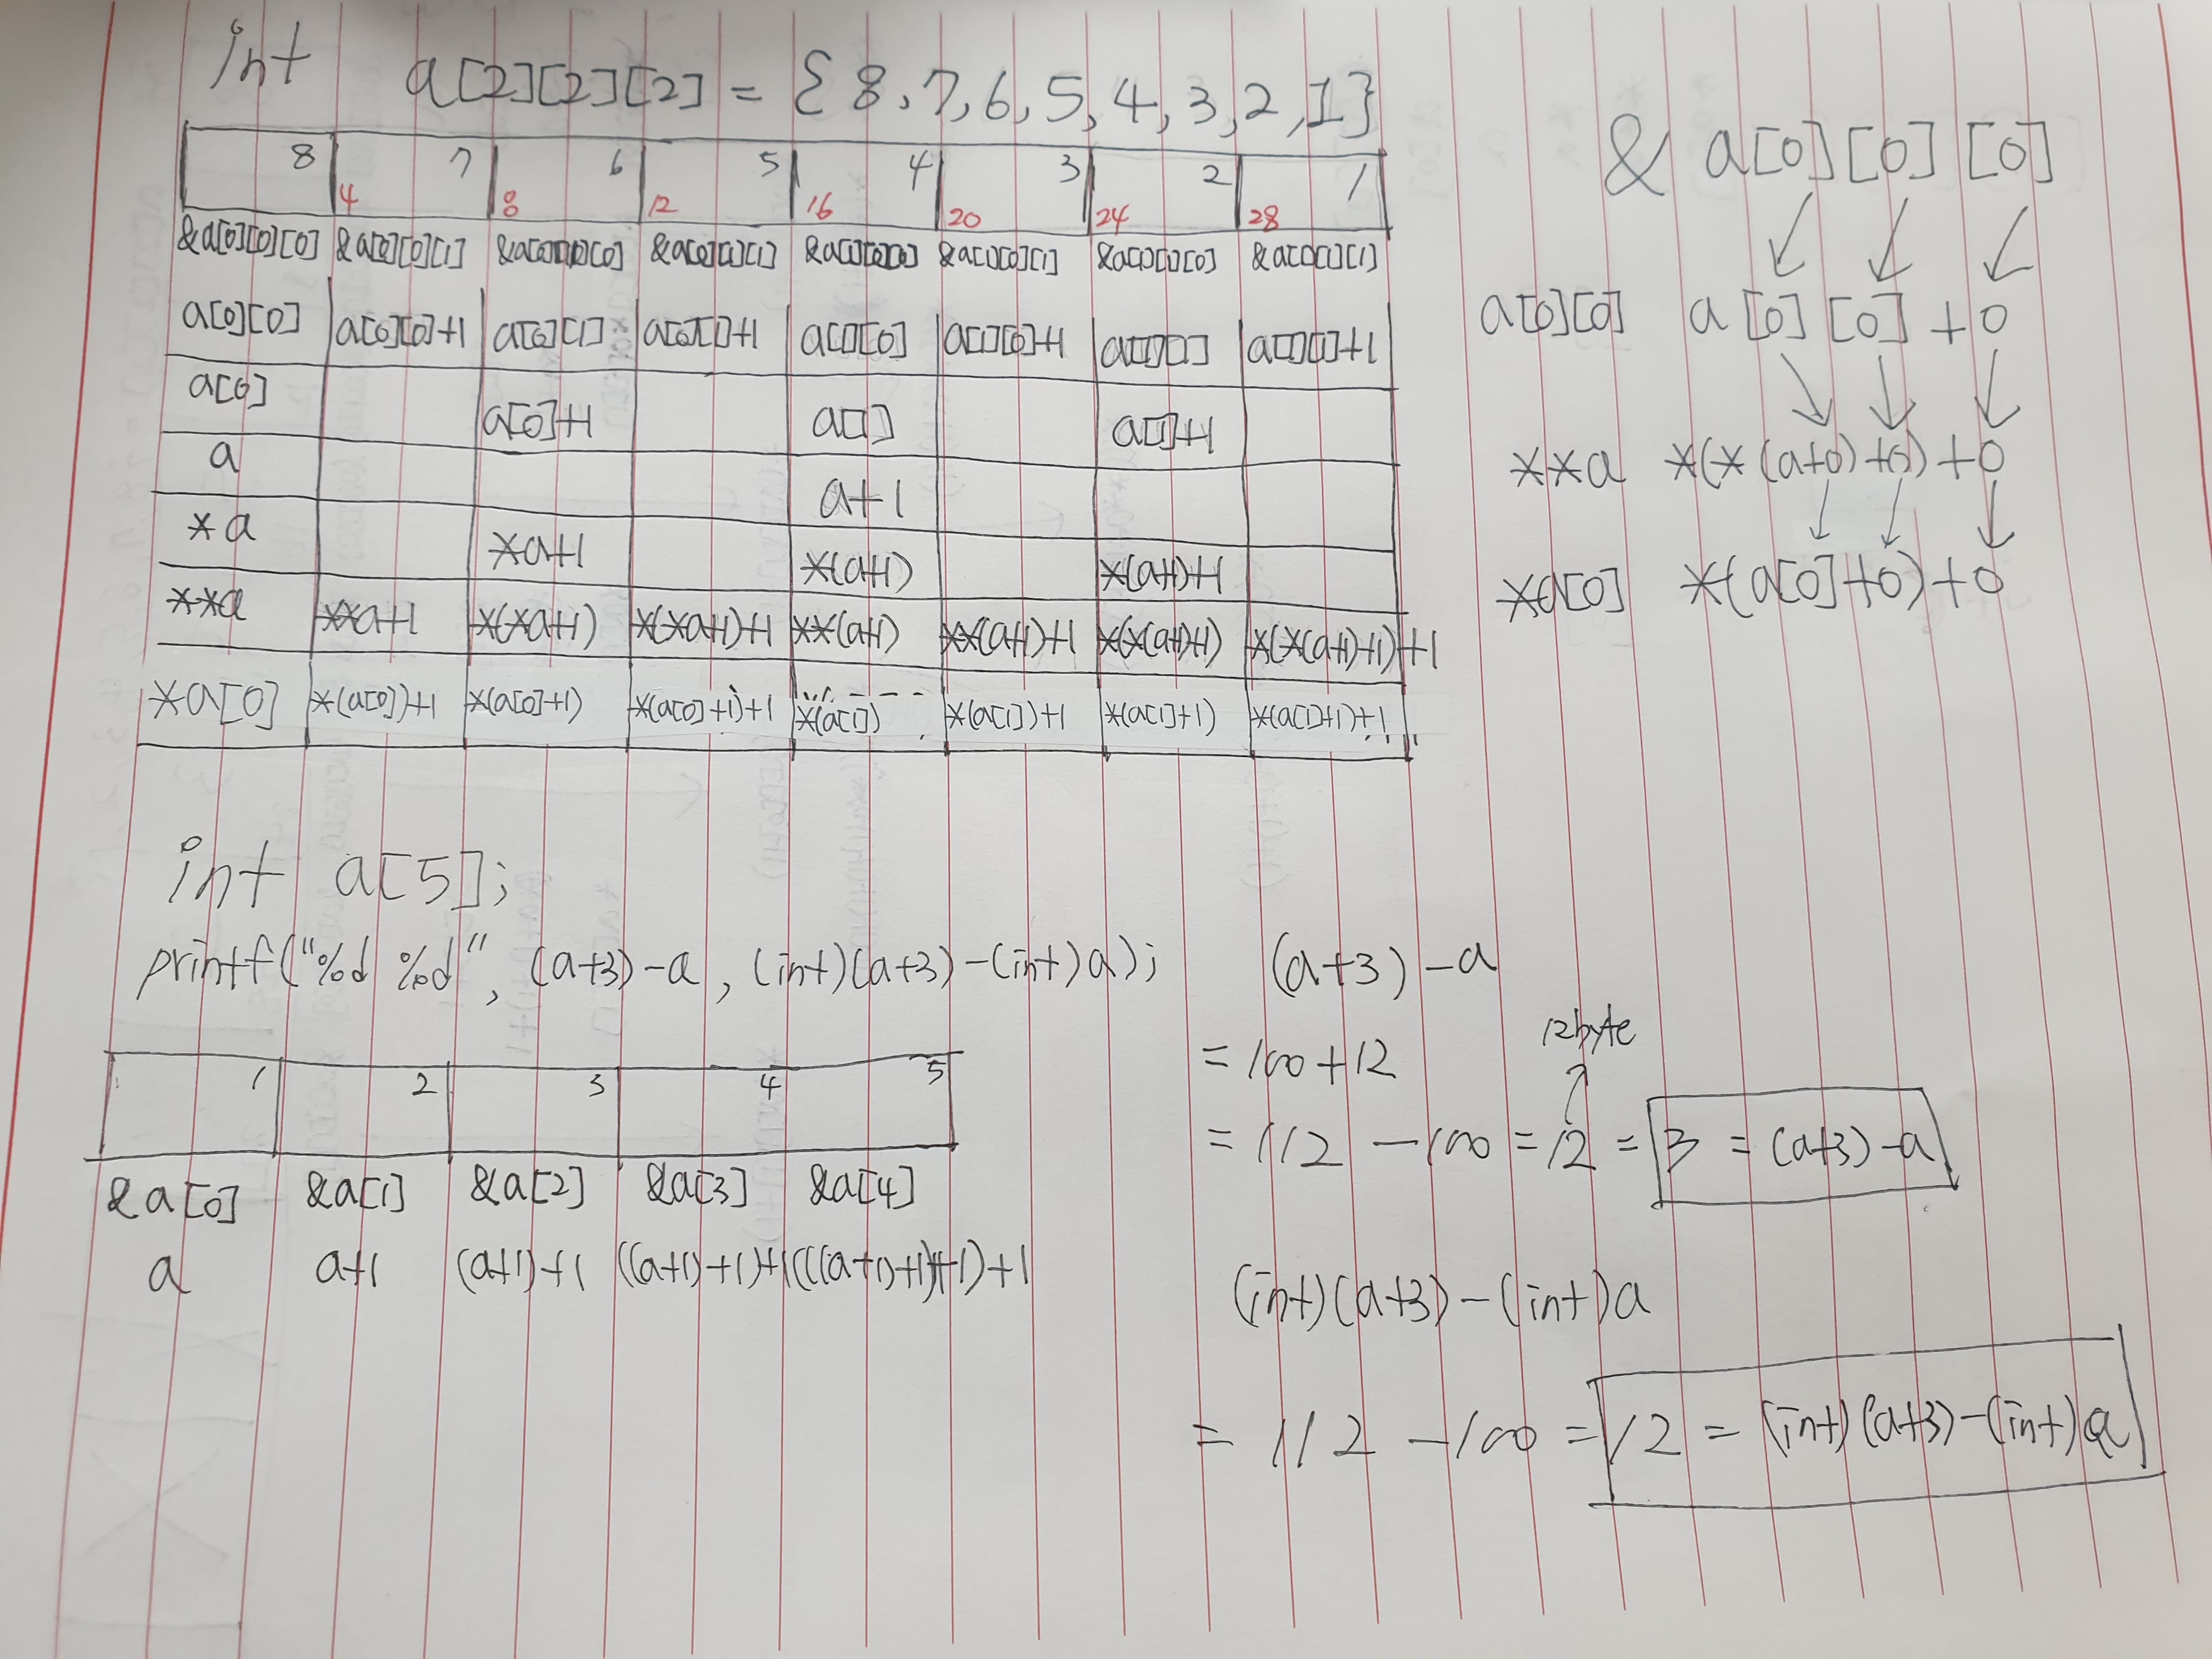 int a[2][2][2] = {8,7,6,5,4,3,2,1}
8 7 6 5 4 3 2 1
4 8 12 16 20 24 28
&a[0][0][0] &a[0][0][1] &a[0][1][0] &a[0][1][1] &a[1][0][0] &a[1][0][1] &a[1][1][0] &a[1][1][1]
a[0][0] a[0][0]+1 a[0][1] a[0][1]+1 a[1][0] a[1][0]+1 a[1][1] a[1][1]+1
a[0] a[0]+1 a[1] a[1]+1
a a+1
*a *a+1 *(a+1) *(a+1)+1
**a **a+1 *(*a+1) *(*a+1)+1 **(a+1) **(a+1)+1 *(*(a+1)+1) *(*(a+1)+1)+1
*a[0] *(a[0])+1 *(a[0]+1) *(a[0]+1)+1 *(a[1]) *(a[1])+1 *(a[1]+1) *(a[1]+1)+1
& a[0][0][0]
a[0][0] a[0][0]+0
**a *(*(a+0)+0)+0
*a[0] *(a[0]+0)+0
int a[5];
printf("%d %d", (a+3)-a, (int)(a+3)-(int)a);
1 2 3 4 5
&a[0] &a[1] &a[2] &a[3] &a[4]
a a+1 (a+1)+1 ((a+1)+1)+1 (((a+1)+1)+1)+1
(a+3)-a
12byte
= 100+12
= 112 - 100 = 12 = 3 = (a+3)-a
(int)(a+3)-(int)a
= 112 - 100 = 12 = (int)(a+3)-(int)a